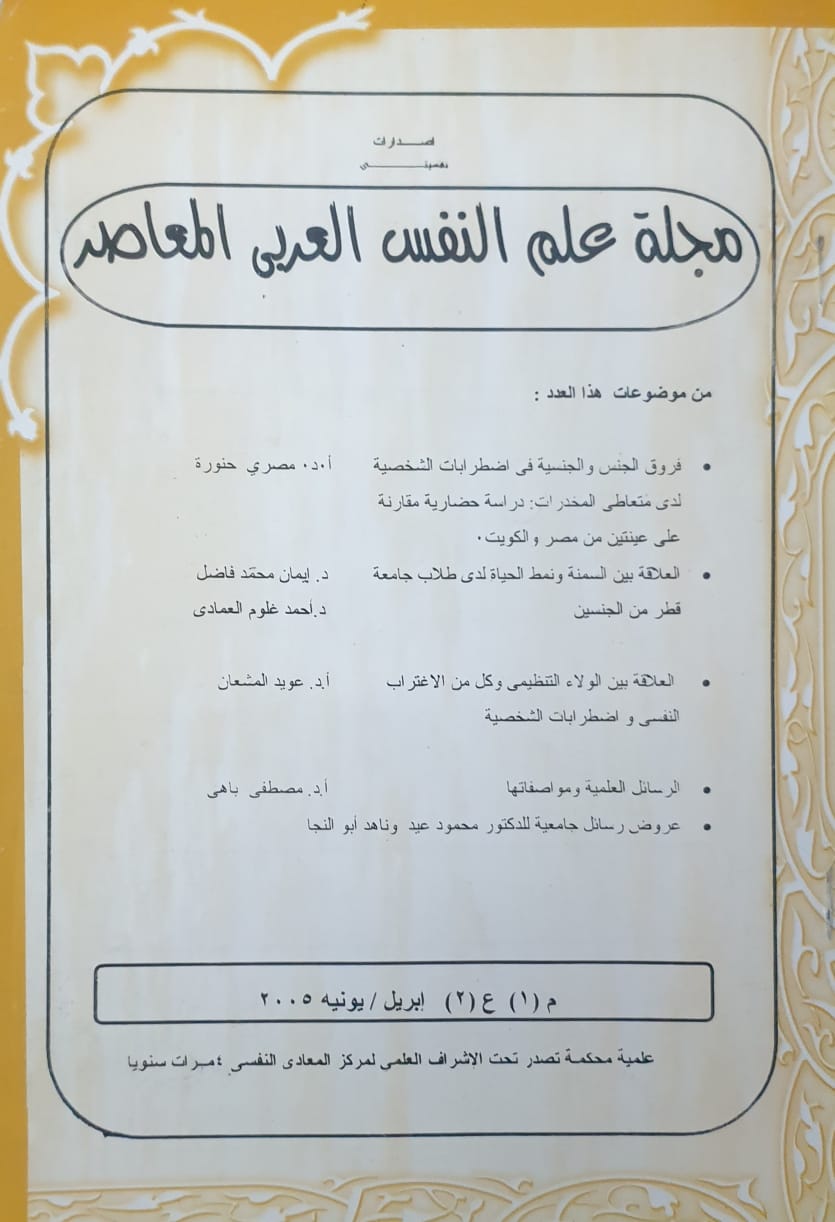 اصدارات
مجلة علم النفس العربى المعاصر
من موضوعات هذا العدد :
• فروق الجنس والجنسية فى اضطرابات الشخصية أ.د. مصري حنورة
لدى متعاطى المخدرات: دراسة حضارية مقارنة
على عينتين من مصر والكويت.
• العلاقة بين السمنة ونمط الحياة لدى طلاب جامعة د. إيمان محمد فاضل
قطر من الجنسين د.أحمد غلوم العمادى
• العلاقة بين الولاء التنظيمى وكل من الاغتراب أ.د. عويد المشعان
النفسى و اضطرابات الشخصية
• الرسائل العلمية ومواصفاتها أ.د. مصطفى باهى
• عروض رسائل جامعية للدكتور محمود عيد وناهد أبو النجا
م (١) ع (٢) إبريل / يونيه ٢٠٠٥
علمية محكمة تصدر تحت الإشراف العلمى لمركز المعادى النفسى ٤ مرات سنويا